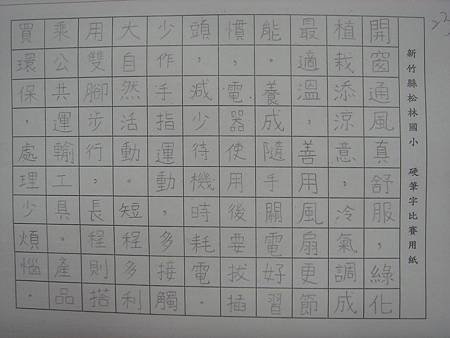 新竹縣松林國小　硬筆字比賽用紙
開窗通風真舒服，綠化
植栽添涼意，冷氣調成
最適溫，善用風扇更節
能。養成隨手關電好習
慣，電器使用後要拔插
頭，減少待機時耗電。
少作手指運動，多接觸
大自然活動。短程多利
用雙腳步行，長程則搭
乘公共運輸工具。產品
買環保，處理少煩惱。